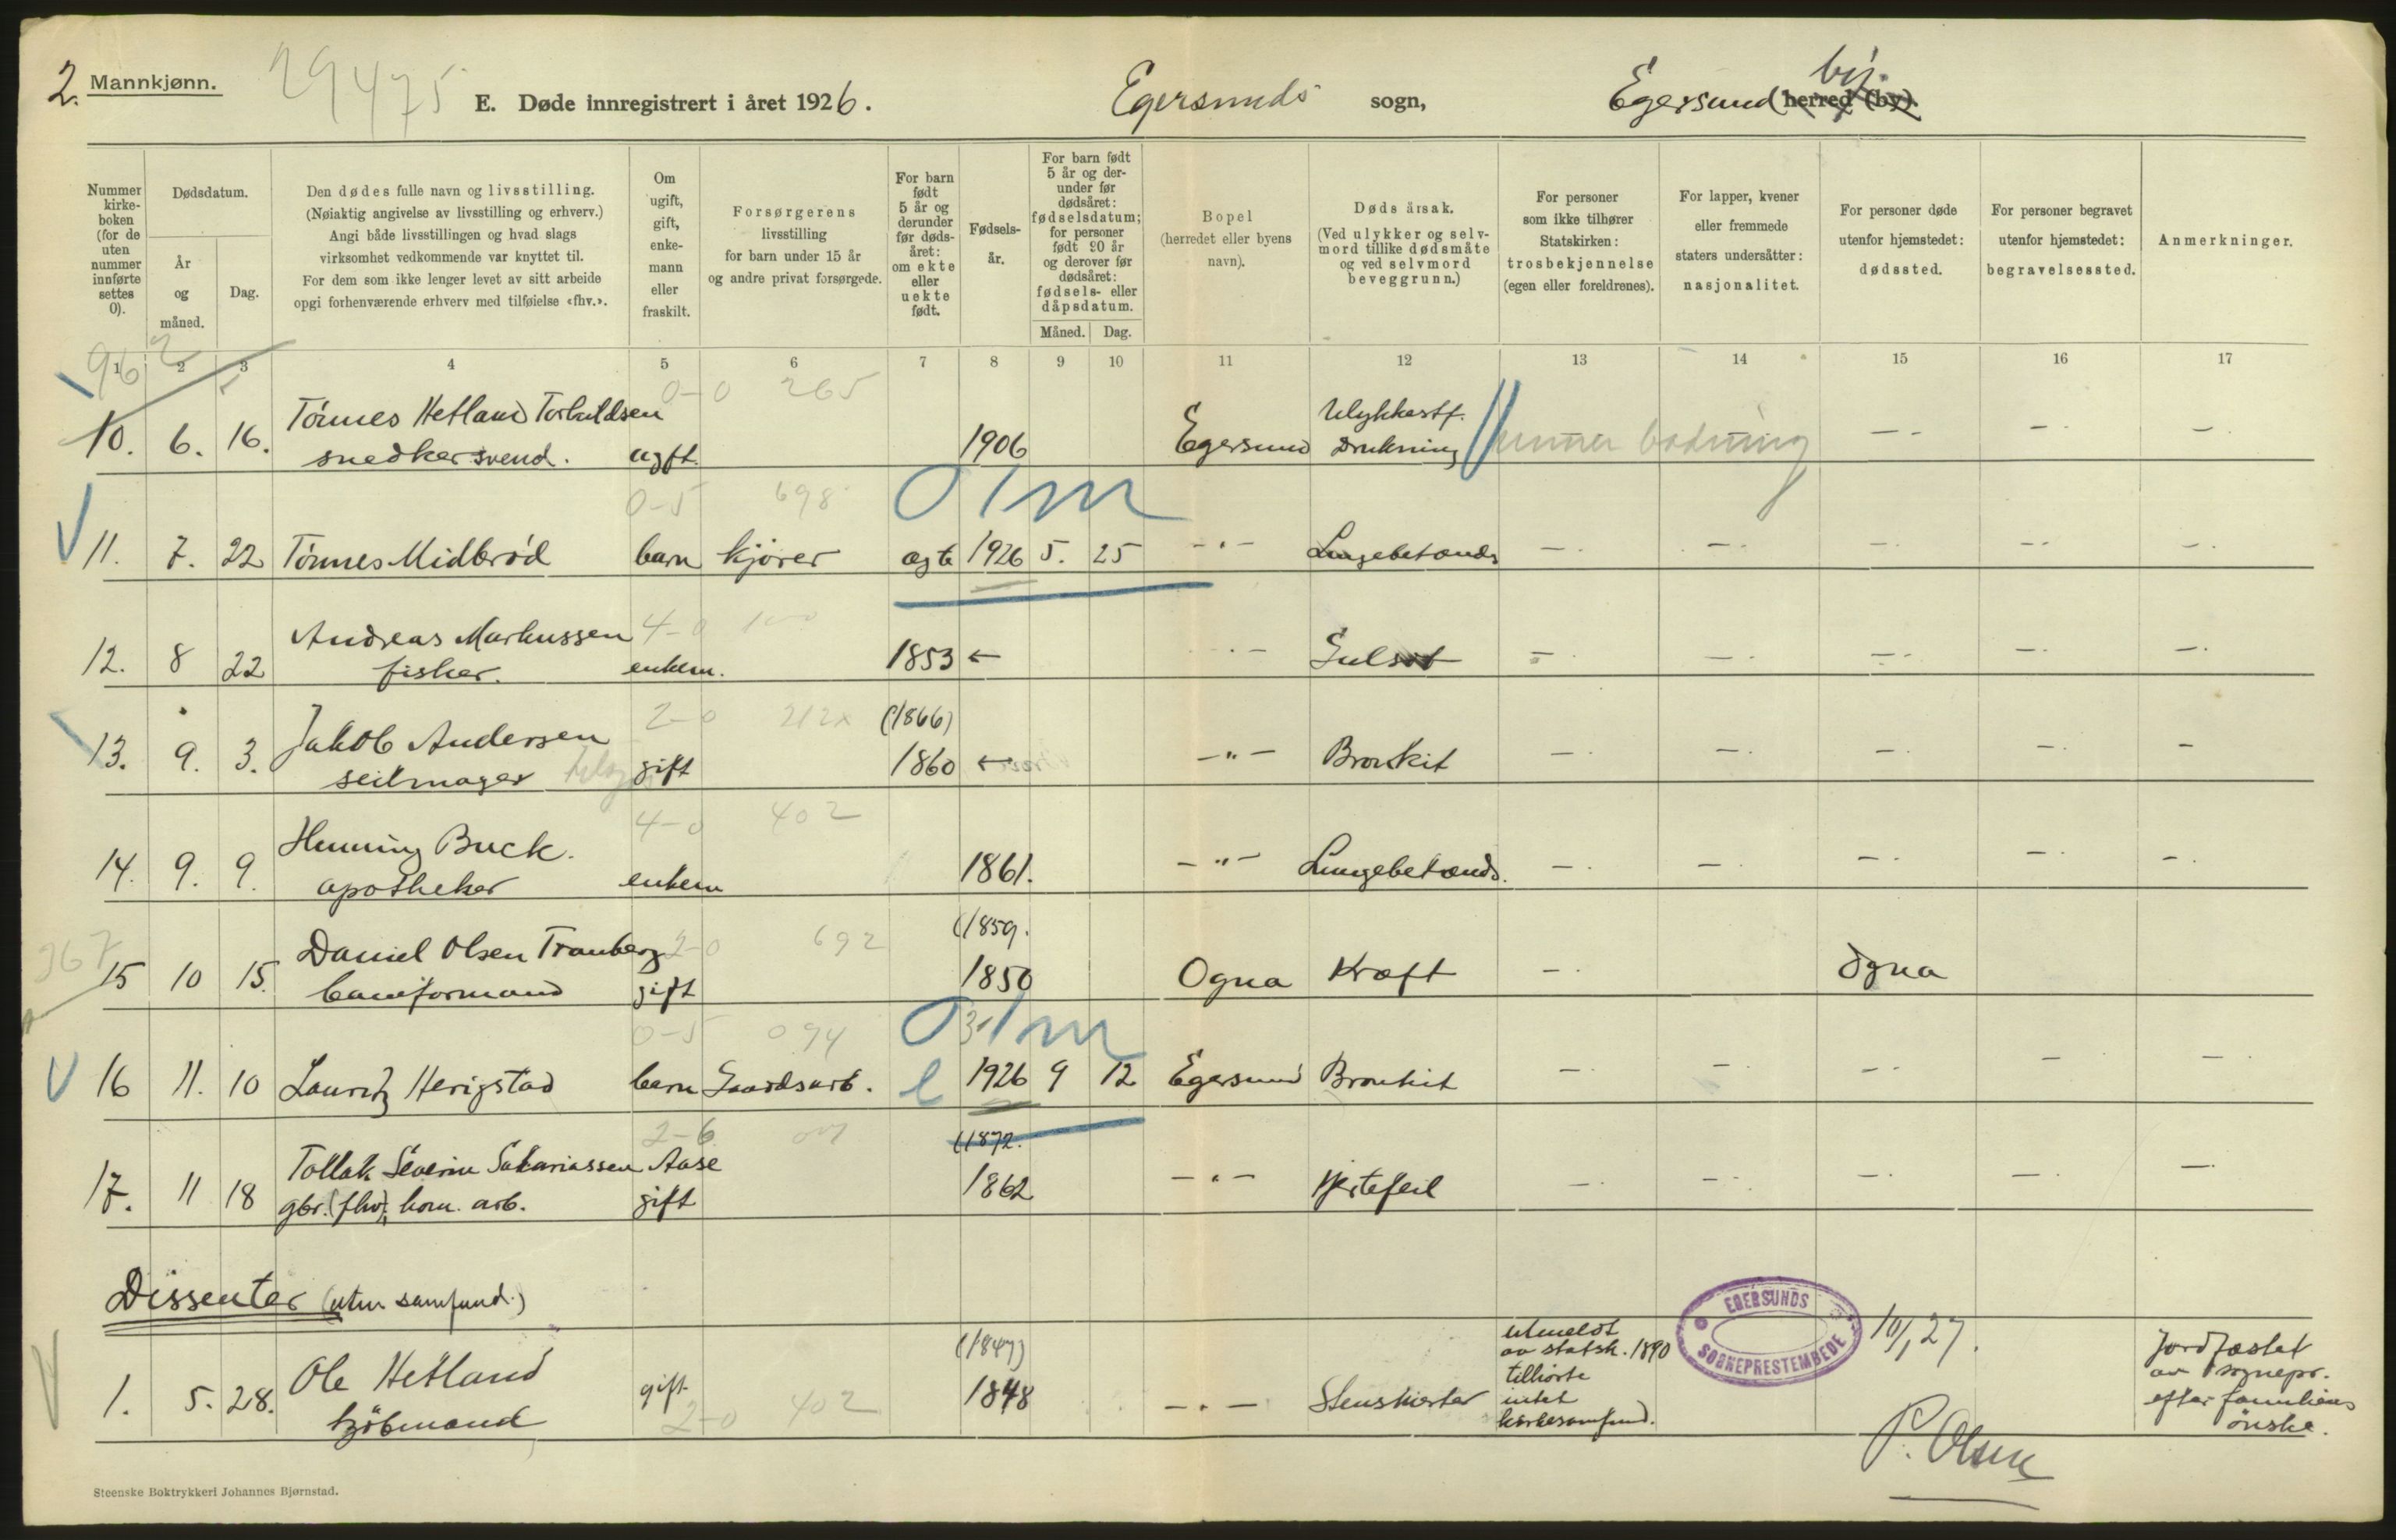 2. Mannkjønn.
29475
E. Døde innregistrert i året 1926. Egersunds sogn, Egersund by. herred (by).
Nummer kirke-boken (for de uten nummer innførte settes 0).
Dødsdatum.
År og måned.
Dag.
Den dødes fulle navn og livsstilling.
(Nøiaktig angivelse av livsstilling og erhverv.)
Angi både livsstillingen og hvad slags
virksomhet vedkommende var knyttet til.
For dem som ikke lenger levet av sitt arbeide
opgi forhenværende erhverv med tilføielse «fhv.».
Om ugift, gift, enke-mann eller fraskilt.
Forsørgerens
livsstilling
for barn under 15 år
og andre privat forsørgede.
For barn født 5 år og derunder før døds-året: om ekte eller uekte født.
Fødsels-år.
For barn født 5 år og der-under før dødsåret: fødselsdatum; for personer født 90 år og derover før dødsåret: fødsels- eller dåpsdatum.
Måned. Dag.
Bopel
(herredet eller byens
navn).
Dødsårsak.
(Ved ulykker og selv-
mord tillike dødsmåte
og ved selvmord
beveggrunn.)
For personer
som ikke tilhører
Statskirken:
trosbekjennelse
(egen eller foreldrenes).
For lapper, kvener
eller fremmede
staters undersåtter:
nasjonalitet.
For personer døde
utenfor hjemstedet:
dødssted.
For personer begravet
utenfor hjemstedet:
begravelsessted.
Anmerkninger.
1 2 3 4 5 6 7 8 9 10 11 12 13 14 15 16 17
962
0-0 265
Tönnes Hetland Torkildsen Ulykkestf.
10. 6. 16. snedkersvend. ugft. 1906 Egersund Drukning under badning — — —
0-5 698 01m
11. 7. 22 Tönnes Midbrød barn kjører ægte 1926 5. 25 -"- Lungebetænds — — — — —
Andreas Markussen 4-0 100
12. 8 22 fisker. enkem. 1853 ← -"- Gulsot — — — — —
Jakob Andersen 2-0 212x (1866)
13. 9. 3. seilmager gift 1860 ← -"- Bronkit — — — — —
Henning Buck. 4-0 402
14. 9. 9. apotheker enkem 1861. -"- Lungebetænds. — — — — —
367
Daniel Olsen Tranberg 2-0 692 (1859.
15 10 15. baneformand gift 1850 Ogna Kræft — Ogna
0-5 094 031m
16 11. 10 Lauritz Herigstad barn Gaardsarb. e 1926 9 12 Egersund Bronkit — — — — —
2-6 (1872.
Tollak Severin Sakariassen Aase
17. 11 18 gbr. (fhv), kom. arb. gift 1862 -"- Hjertefeil — — — — —
Dissenter (uten samfund.)
Ole Hetland (1847)
1. 5. 28. kjöbmand gift 2-0 402 1848 -"-
utmeldt
av statsk. 1890
tilhörte
intet
kirkesamfund.
EGERSUNDS SOGNEPRESTEMBEDE
10/1 27.
P. Olsen
Jordfæstet
av sognepr.
efter familiens
önske.
Steenske Boktrykkeri Johannes Bjørnstad.